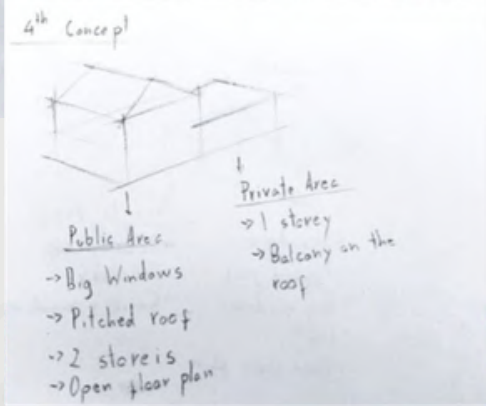 4th Concept
Public Area
-> Big Windows
-> Pitched roof
-> 2 storeis
-> Open floor plan
Private Area
-> 1 storey
-> Balcony on the
roof